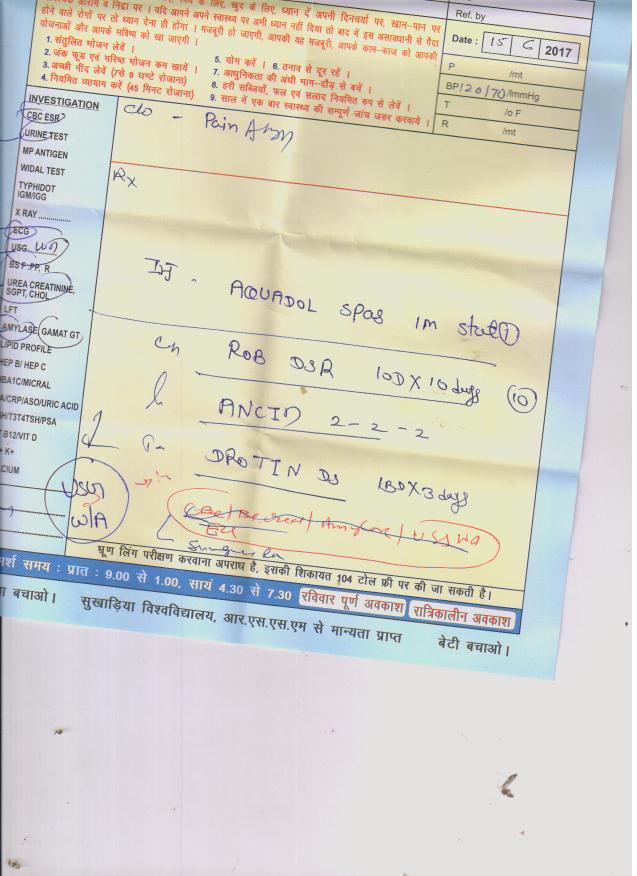 होने वाले रोगों पर तो ध्यान देना ही होगा । मजबूरी हो जाएगी, आपकी यह मजबूरी, आपके काम-काज को आपकी
योजनाओं और आपके भविष्य को खा जाएगी ।
1. संतुलित भोजन लेवें ।
2. जंक फूड एवं गरिष्ठ भोजन कम खायें ।
3. अच्छी नींद लेवें
4. नियमित व्यायाम करें (45 मिनट रोजाना)
5. योग करें ।
6. तनाव से दूर रहें ।
7. आधुनिकता की अंधी भाग-दौड़ से बचें ।
8. हरी सब्जियाँ, फल एवं सलाद नियमित रुप से लेवें ।
9. साल में एक बार स्वास्थ्य की सम्पूर्ण जांच जरुर करवाये ।
Ref. by
Date : 15 6 2017
P /mt
BP 120/70 /mmHg
T /o F
R /mt
INVESTIGATION
CBC ESR
URINE TEST
MP ANTIGEN
WIDAL TEST
TYPHIDOT
IGM/IGG
X RAY ..............
ECG
USG
BS F .PP, R
UREA CREATININE,
SGPT, CHOL
LFT
AMYLASE GAMAT GT
LIPID PROFILE
HEP B/ HEP C
HBA1C/MICRAL
A/CRP/ASO/URIC ACID
H/T3T4TSH/PSA
T B12/VIT D
+ K+
CIUM
USG
W/A
c/o - Pain Abdn
Rx
Inj. AQUADOL SPAS IM stat 1
ROB DSR 1OD X 10 days 10
ANCID 2-2-2
DROTIN DS 1BD X 3 days
भ्रूण लिंग परीक्षण करवाना अपराध है, इसकी शिकायत 104 टोल फ्री पर की जा सकती है।
मर्श समय : प्रात : 9.00 से 1.00, सायं 4.30 से 7.30 रविवार पूर्ण अवकाश रात्रिकालीन अवकाश
बचाओ। सुखाड़िया विश्वविद्यालय, आर.एस.एस.एम से मान्यता प्राप्त बेटी बचाओ।